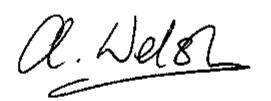 A. Welsh